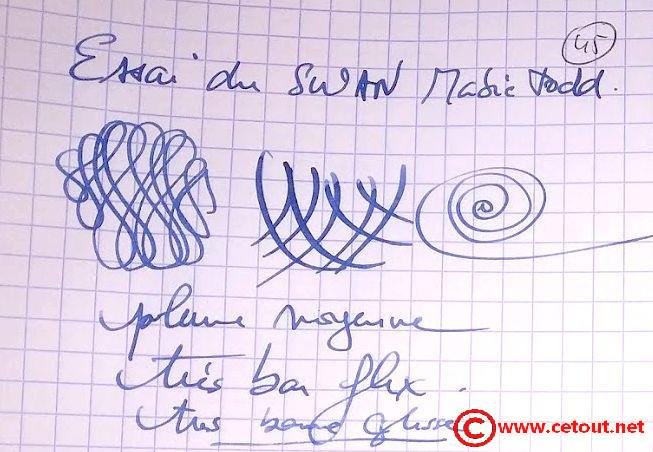 45
Essai du SWAN Mabie Todd.
plume moyenne
très bon flux.
très bonne glisse
© www.cetout.net